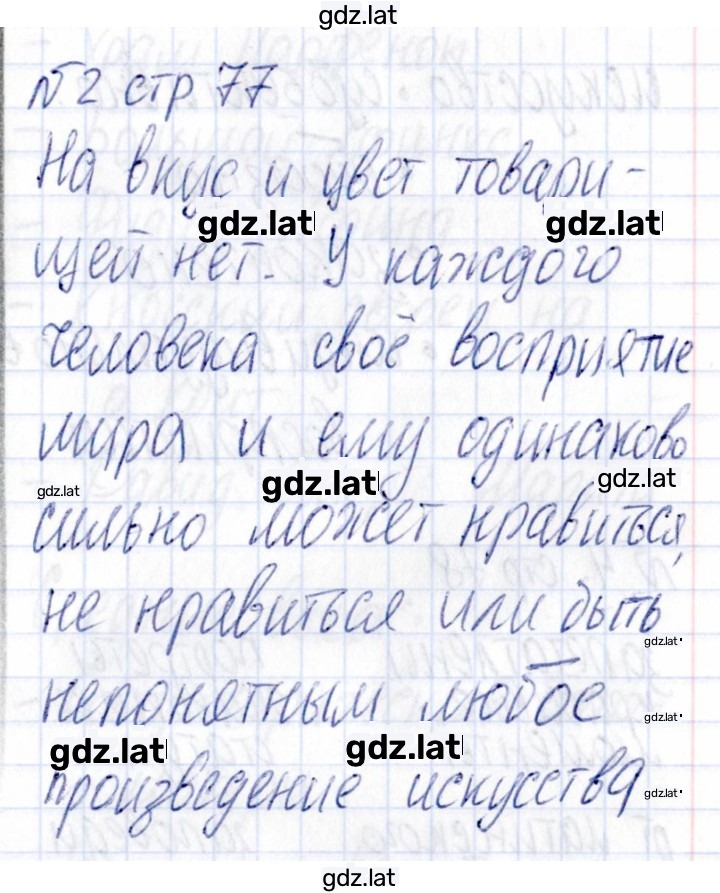 gdz.lat
№2 стр 77
На вкус и цвет товари-
gdz.lat gdz.lat
щей нет. У каждого
человека своё восприятие
мира и ему одинаково
gdz.lat gdz.lat gdz.lat
сильно может нравиться,
не нравиться или быть
gdz.lat
непонятным любое
gdz.lat
gdz.lat gdz.lat
произведение искусства.
gdz.lat
gdz.lat